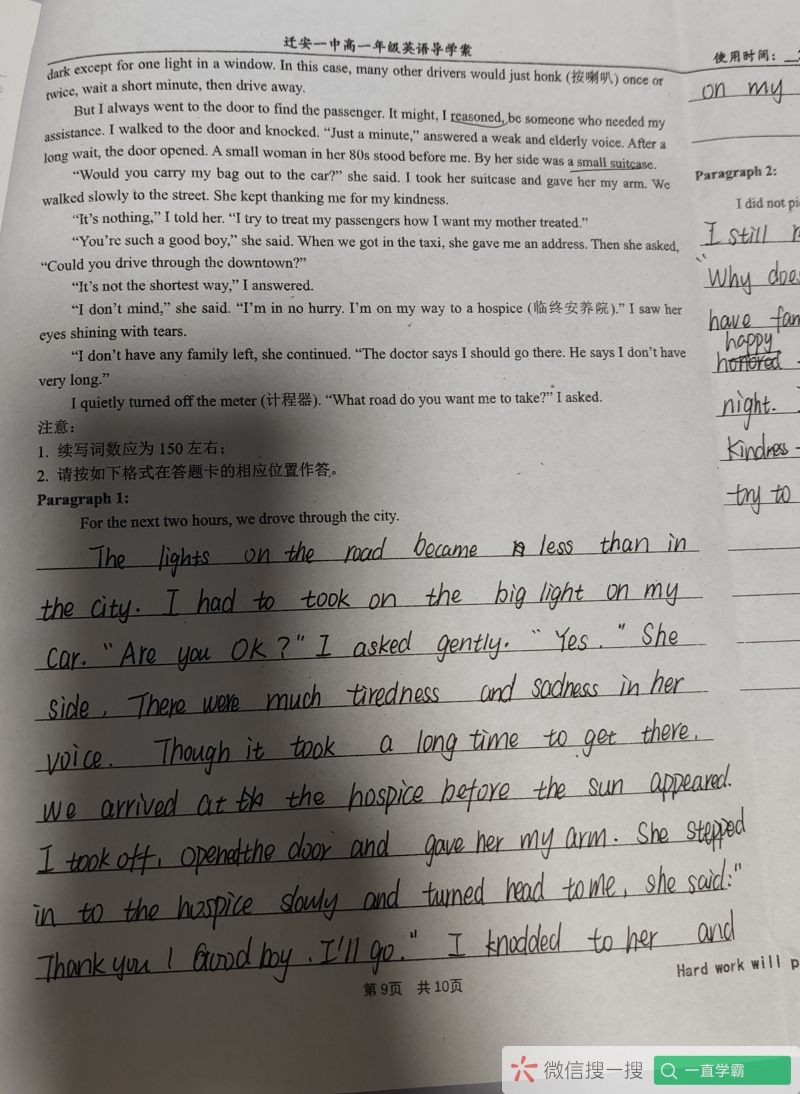 迁安一中高一年级英语导学案
使用时间：
dark except for one light in a window. In this case, many other drivers would just honk (按喇叭) once or
twice, wait a short minute, then drive away.
But I always went to the door to find the passenger. It might, I reasoned, be someone who needed my
assistance. I walked to the door and knocked. “Just a minute,” answered a weak and elderly voice. After a
long wait, the door opened. A small woman in her 80s stood before me. By her side was a small suitcase.
“Would you carry my bag out to the car?” she said. I took her suitcase and gave her my arm. We
walked slowly to the street. She kept thanking me for my kindness.
“It’s nothing,” I told her. “I try to treat my passengers how I want my mother treated.”
“You’re such a good boy,” she said. When we got in the taxi, she gave me an address. Then she asked,
“Could you drive through the downtown?”
“It’s not the shortest way,” I answered.
“I don’t mind,” she said. “I’m in no hurry. I’m on my way to a hospice (临终安养院).” I saw her
eyes shining with tears.
“I don’t have any family left, she continued. “The doctor says I should go there. He says I don’t have
very long.”
I quietly turned off the meter (计程器). “What road do you want me to take?” I asked.
注意：
1. 续写词数应为 150 左右；
2. 请按如下格式在答题卡的相应位置作答。
Paragraph 1:
For the next two hours, we drove through the city.
The lights on the road became less than in
the city. I had to took on the big light on my
car. “Are you OK?” I asked gently. “Yes.” She
side, There were much tiredness and sadness in her
voice. Though it took a long time to get there,
we arrived at the hospice before the sun appeared.
I took off, opened the door and gave her my arm. She stepped
in to the hospice slowly and turned head to me, she said:“
Thank you! Good boy. I'll go.” I knodded to her and
第9页 共10页
Hard work will p
on my
Paragraph 2:
I did not pi
I still
“Why does
have fam
happy
honored
night.
Kindness
try to
微信搜一搜
一直学霸